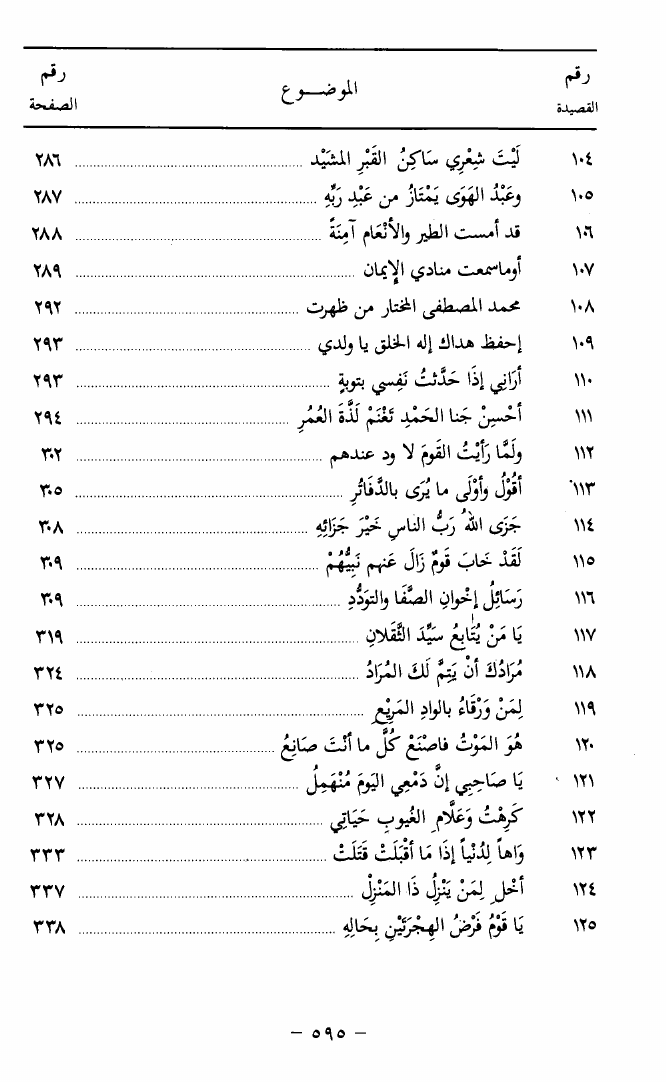 رقم القصيدة الموضـــوع رقم الصفحة
١٠٤ لَيْتَ شِعْرِي سَاكِنُ القَبْرِ المشَيَّد ٢٨٦
١٠٥ وعَبْدُ الهَوَى يَمْتَازُ من عَبْدِ رَبِّهِ ٢٨٧
١٠٦ قد أمست الطير والأنْعَام آمِنَةً ٢٨٨
١٠٧ أوماسمعت منادي الإِيمان ٢٨٩
١٠٨ محمد المصطفى المختار من ظهرت ٢٩٢
١٠٩ إحفظ هداك إله الخلق يا ولدي ٢٩٣
١١٠ أرَانِي إذَا حَدَّثتُ نَفِسي بتوبةٍ ٢٩٣
١١١ أحْسِنْ جَنا الحَمْدِ تَغْنَمْ لَذَّةَ العُمُرِ ٢٩٤
١١٢ ولَمَّا رَأَيْتُ القَومَ لا ود عندهم ٣٠٢
١١٣ أقُوْلُ وأوْلَى ما يُرَى بالدَّفَاتُرِ ٣٠٥
١١٤ جَزَى اللهُ رَبُّ الناسِ خَيْرَ جَزَائِهِ ٣٠٨
١١٥ لَقَدْ خَابَ قَومٌ زَالَ عَنهم نَبِيُّهُمْ ٣٠٩
١١٦ رَسَائِلُ إخْوانِ الصَّفَا والتوَدُّدِ ٣٠٩
١١٧ يَا مَنْ يُتَابِعُ سَيِّدَ الثَّقَلانِ ٣١٩
١١٨ مُرَادُكَ أنْ يَتِمَّ لَكَ المُرَادُ ٣٢٤
١١٩ لِمَنْ وَرْقَاءُ بالوادِ المَرِيْعِ ٣٢٥
١٢٠ هُوَ المَوْتُ فاصْنَعْ كُلَّ ما أنْتَ صَانِعُ ٣٢٥
١٢١ يَا صَاحِبِي إنَّ دَمْعِي اليَومَ مُنْهَمِلُ ٣٢٧
١٢٢ كَرِهْتُ وَعَلَّامِ الغُيوبِ حَيَاتِي ٣٢٨
١٢٣ وَاهاً لِدُنْياً إذَا مَا أقْبَلَتْ قَتَلَتْ ٣٣٣
١٢٤ أخْلِ لِمَنْ يَنْزِلُ ذَا المَنْزِلْ ٣٣٧
١٢٥ يَا قَوْمُ فَرْضُ الهِجْرَتَيْنِ بِحَالِهِ ٣٣٨
– ٥٩٥ –